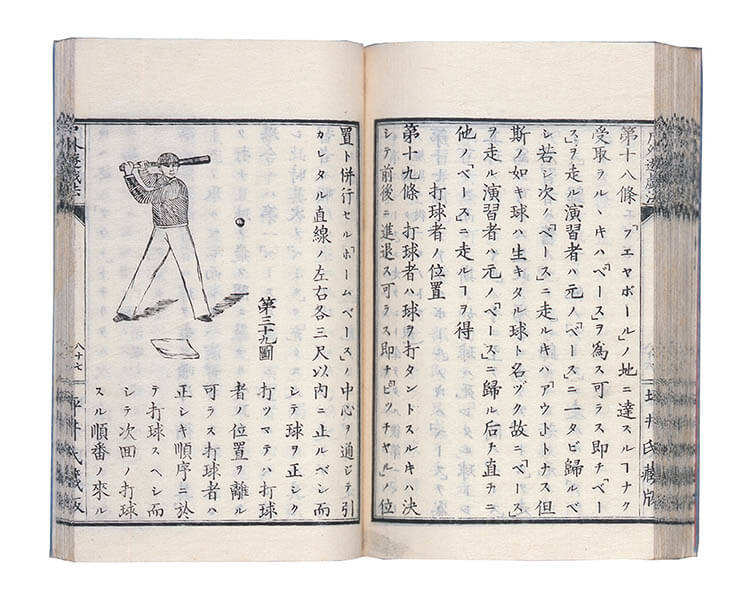 第十八條 「フエヤボール」ノ地ニ達スルヿナク
受取ラルヽキハ「ベースヲ為ス可ラス即チ「ベー
ス」ヲ走ル演習者ハ元ノ「ベース」ニ一タビ歸ルベ
シ若シ次ノ「ベース」ニ走ルキハ「アウトトナス但
斯ノ如キ球ハ生キタル球ト名ヅク故ニ「ベース」
ヲ走ル演習者ハ元ノ「ベース」ニ歸ル后チ直チニ
他ノ「ベース」ニ走ルヿヲ得
打球者ノ位置
第十九條 打球者ハ球ヲ打タントスルキハ決
シテ前後ニ進退ス可ラス即チ「ピツチヤルノ位
坪井氏藏版
置ト併行セル「ホームベースノ中心ヲ通ジテ引
カレタル直線ノ左右各三尺以内ニ止ルベシ而
第三十九圖
シテ球ヲ正シク
打ツマテハ打球
者ノ位置ヲ離ル
可ラス打球者ハ
正シキ順序ニ於
テ打球スヘシ而
シテ次回ノ打球
スル順番ノ來ル
戸外遊戯法
八十七
坪井氏藏版